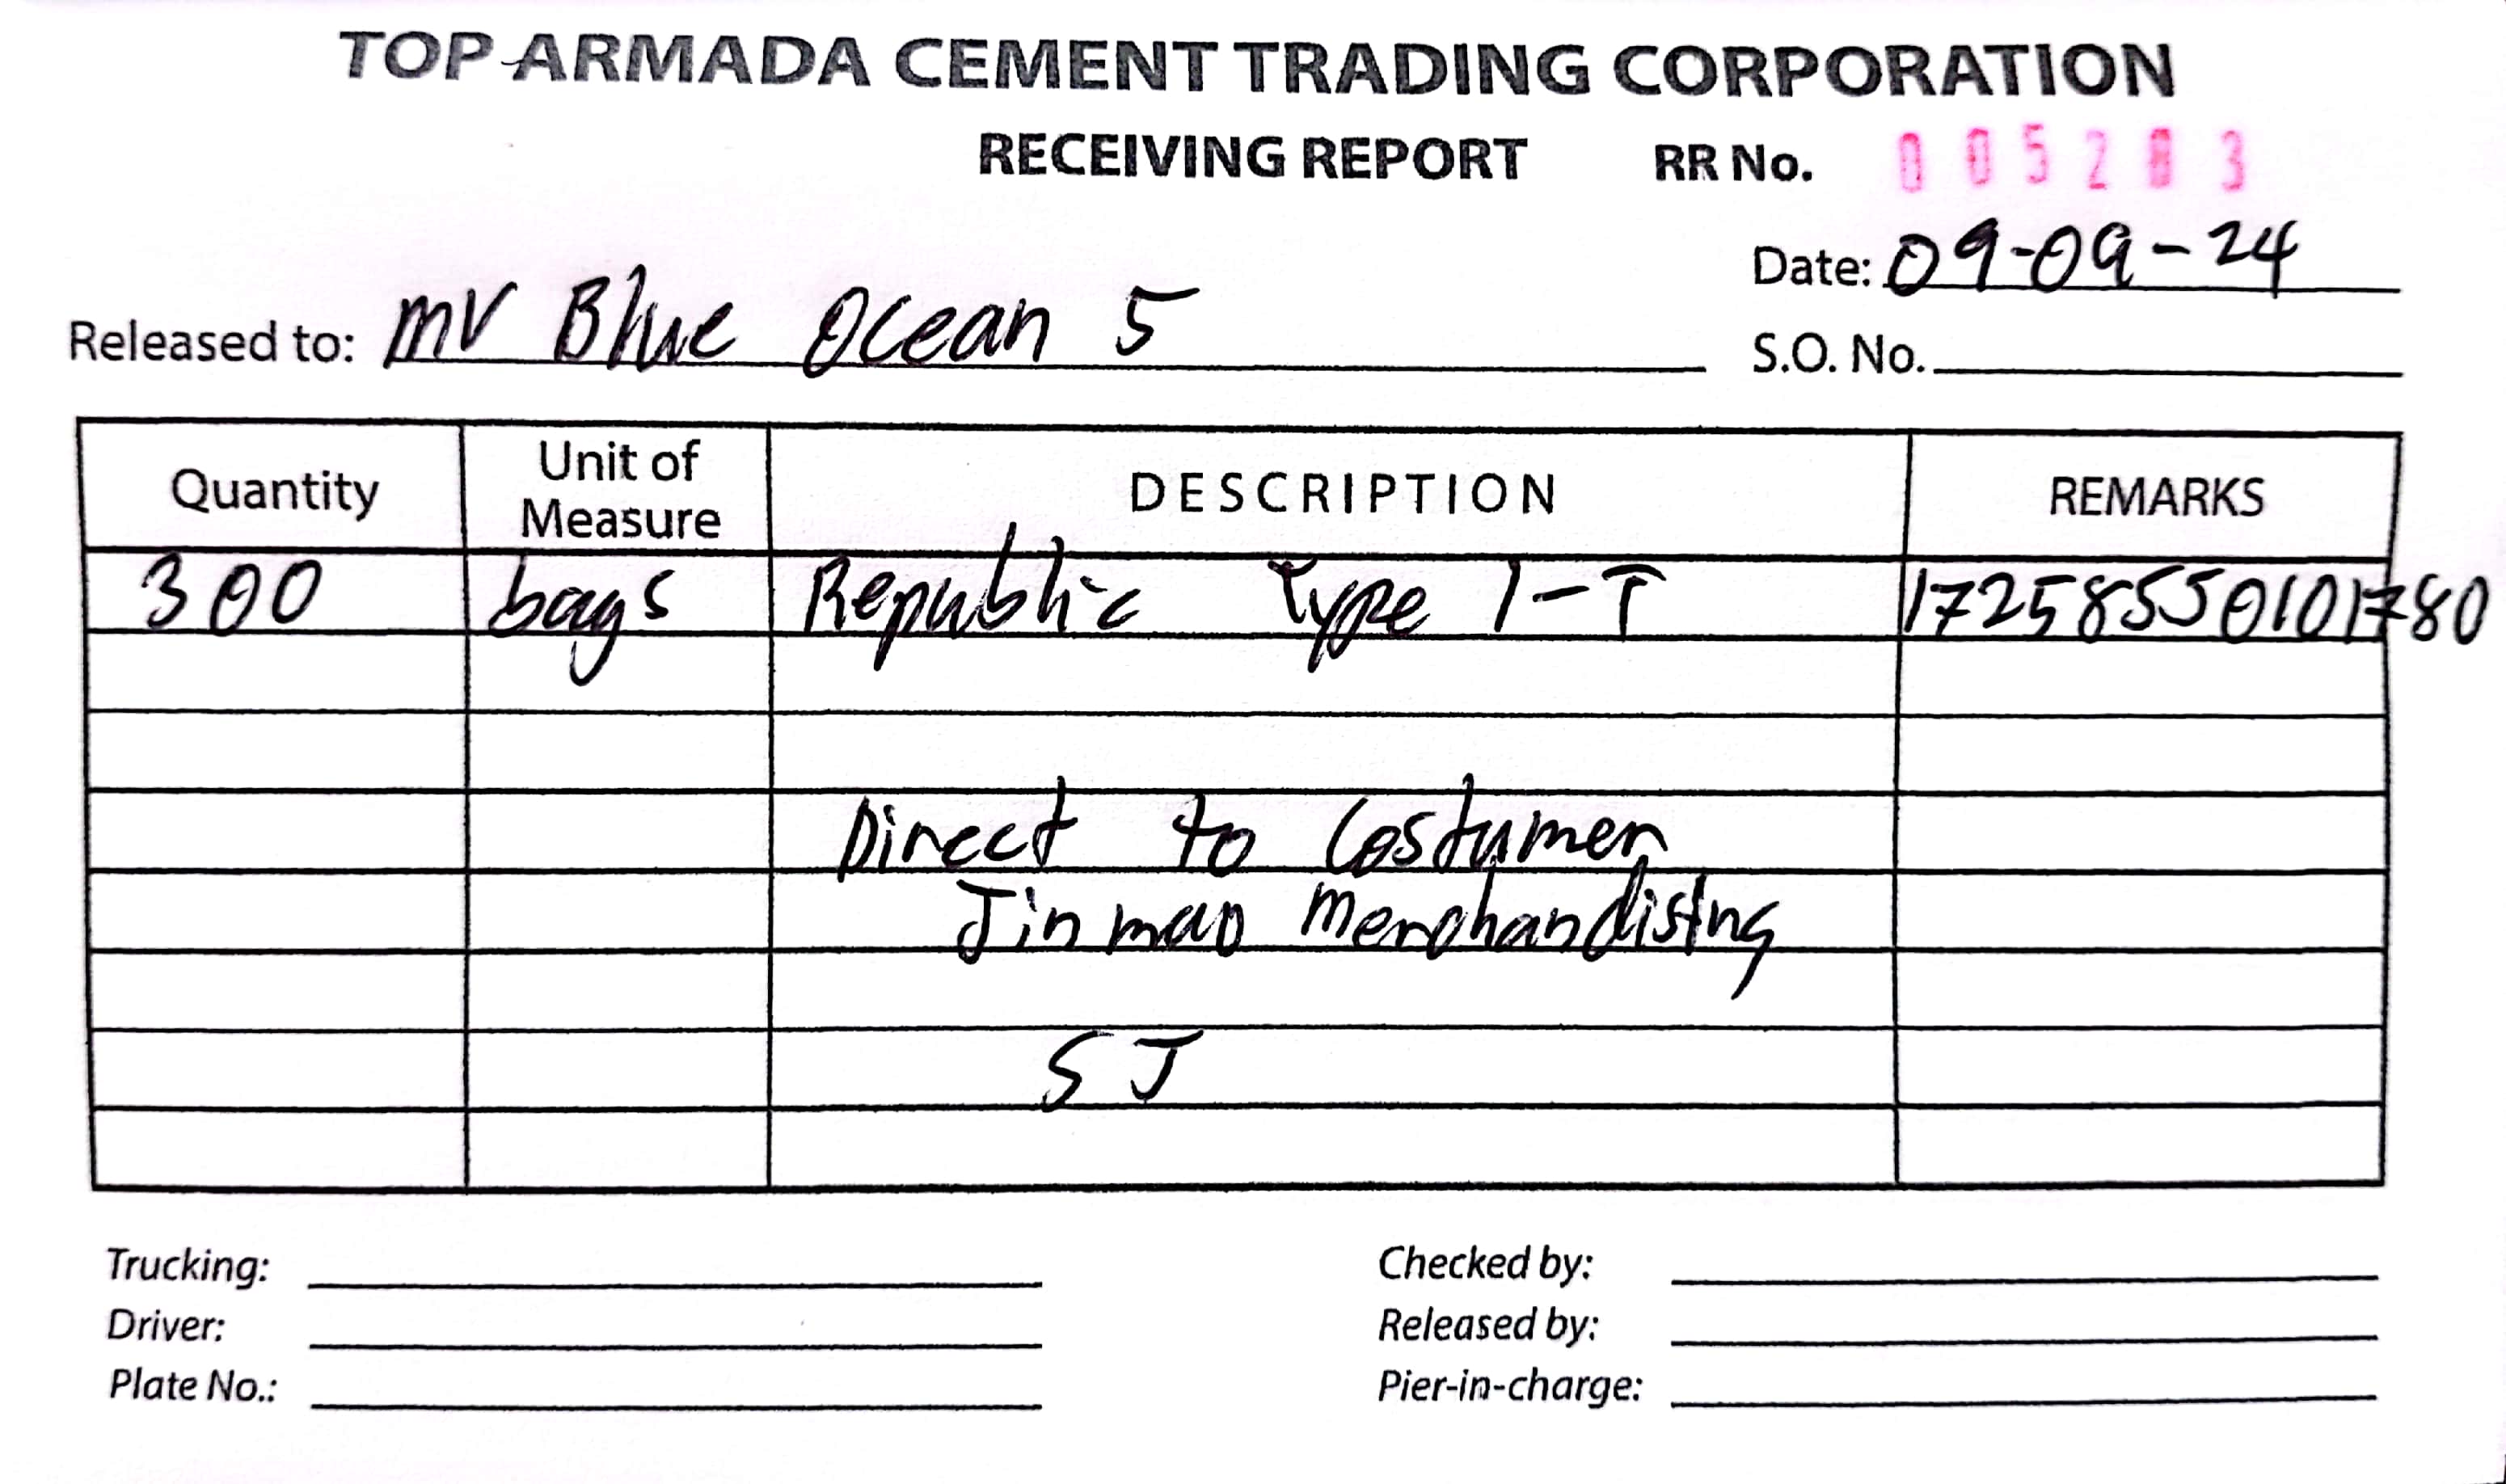 TOP ARMADA CEMENT TRADING CORPORATION
RECEIVING REPORT RR No.
Date: 09-09-24
Released to: MV Blue Ocean 5
S.O. No.
Quantity Unit of Measure DESCRIPTION REMARKS
300 bags Republic Type 1-T 17258550101780
Direct to Costumer
Jinmao Merchandising
SJ
Trucking: Checked by:
Driver: Released by:
Plate No.: Pier-in-charge: